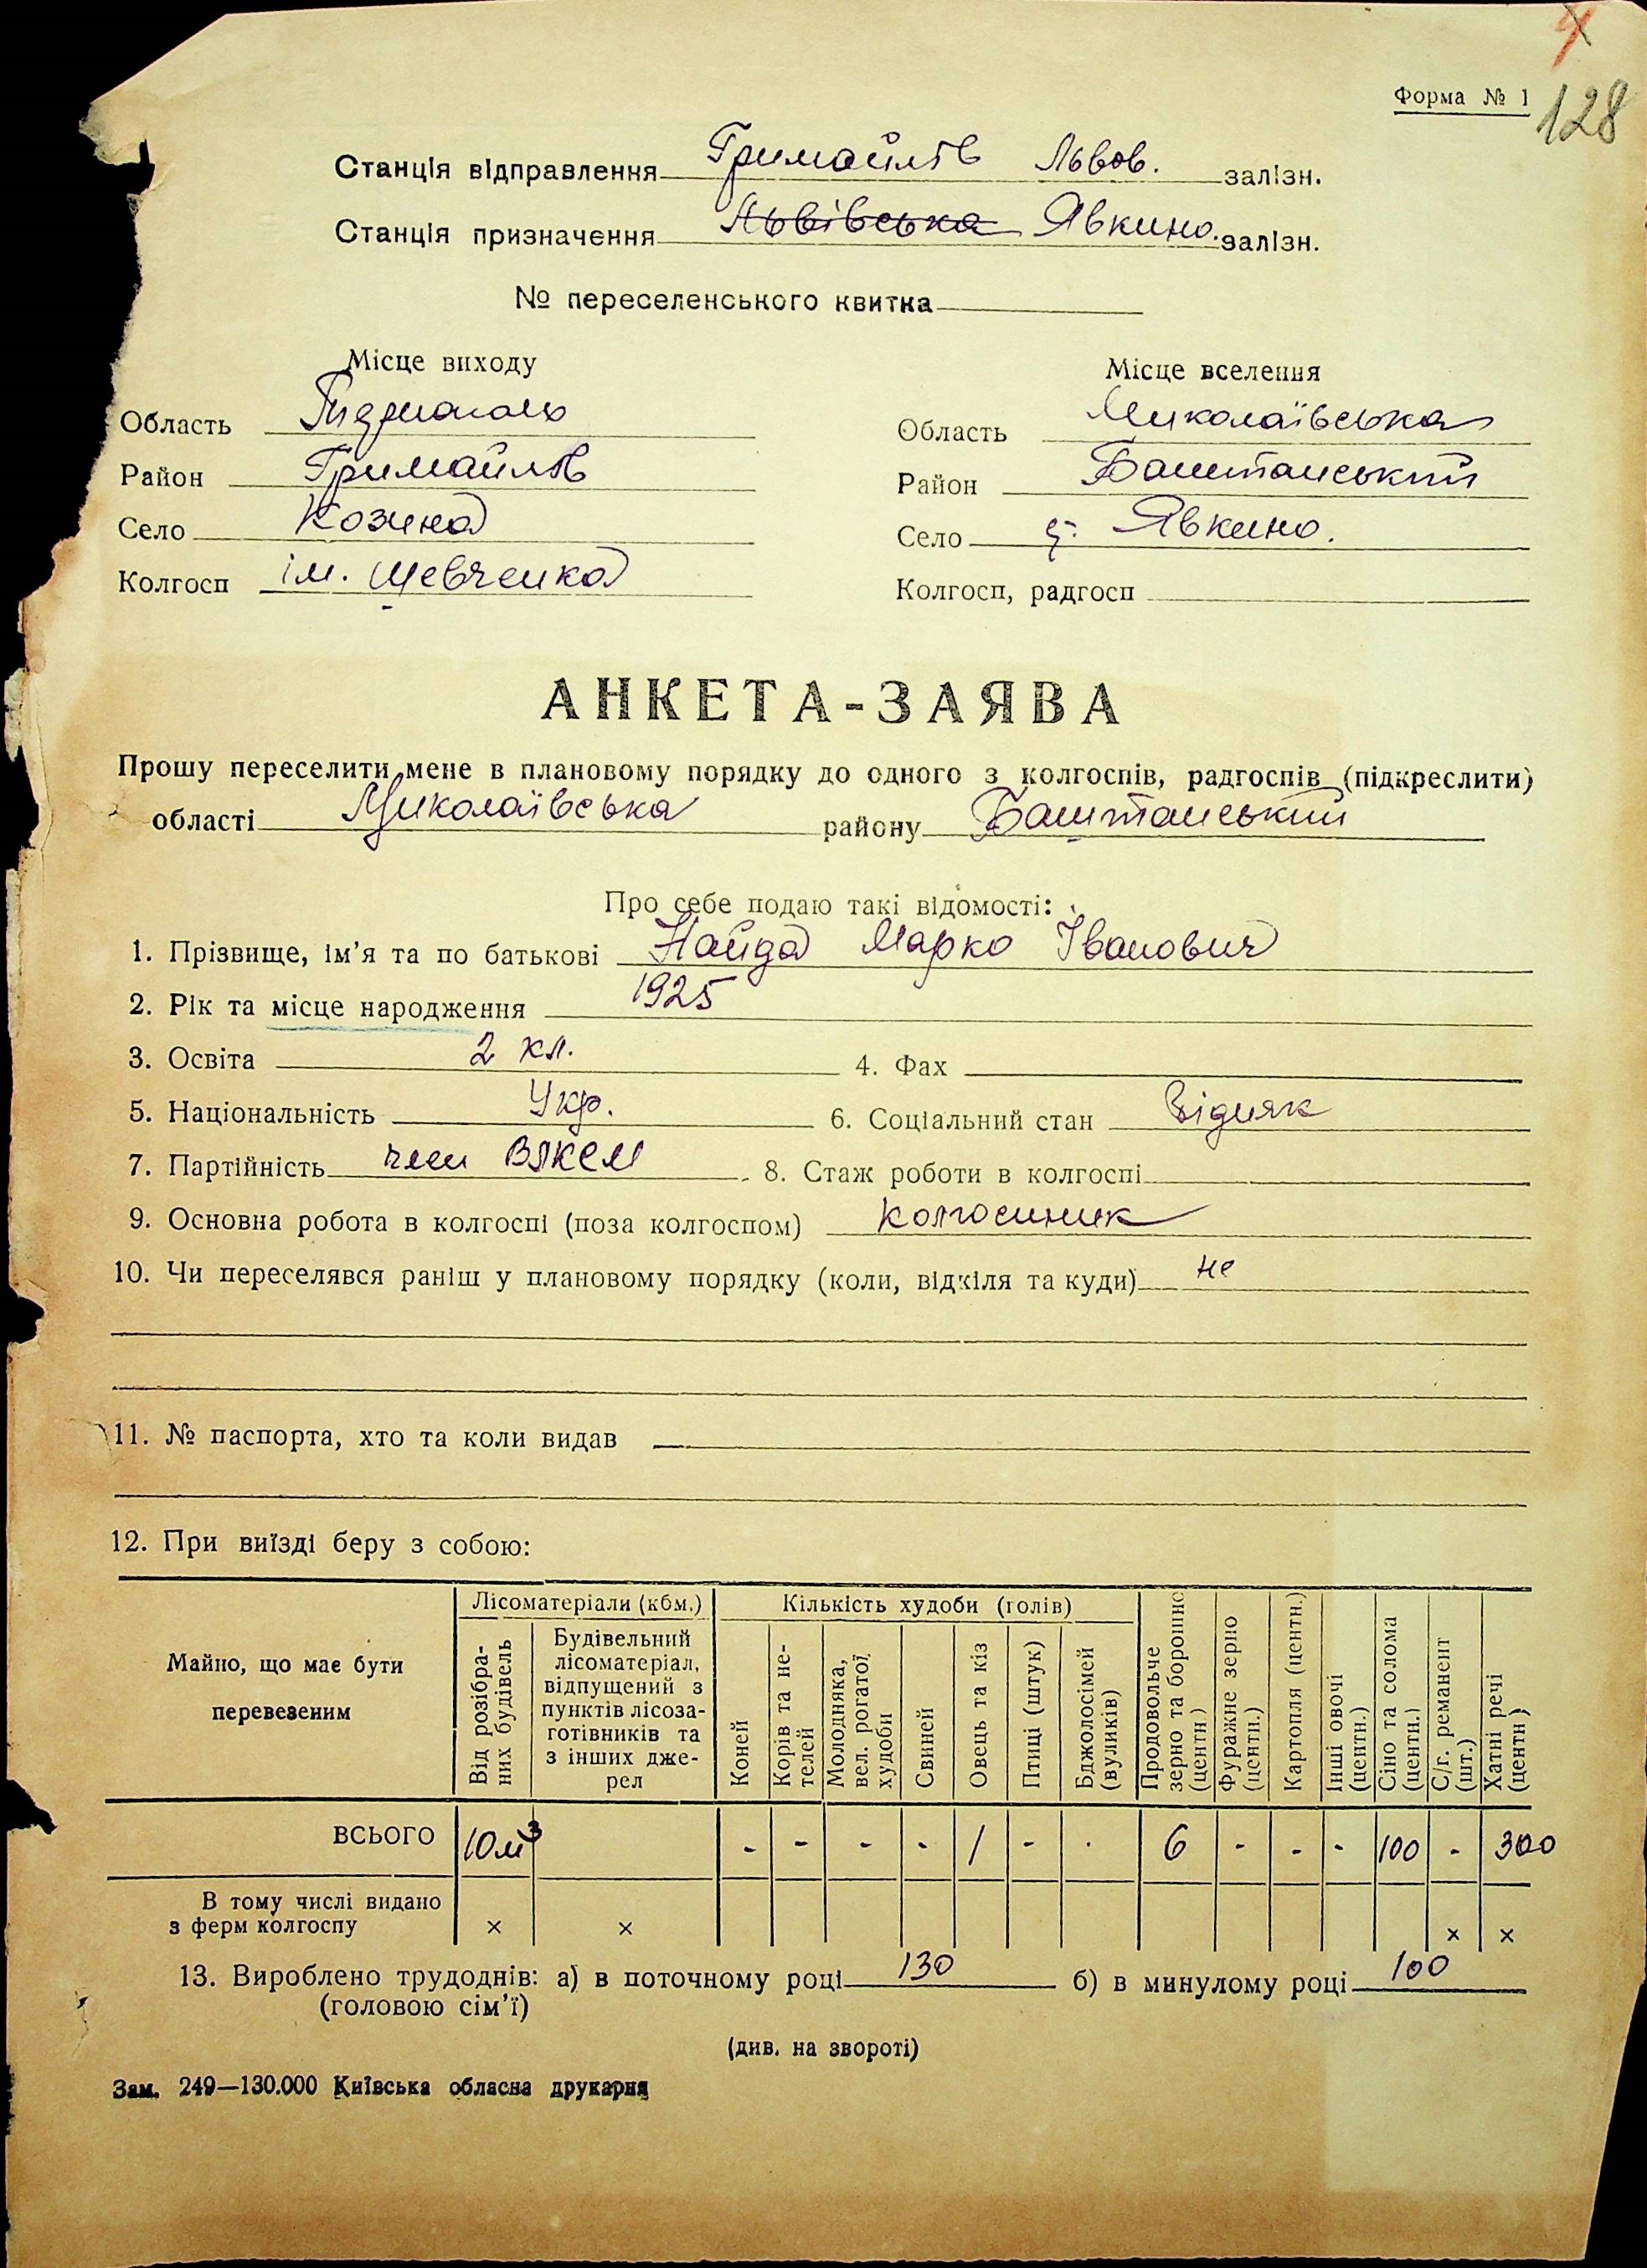 Форма № 1
128
Станція відправлення Гримайлів Львов. залізн.
Станція призначення Львівська Явкино. залізн.
№ переселенського квитка
Місце виходу
Місце вселення
Область
Область Миколаївська
Район Гримайлів
Район Баштанський
Село Козина
Село с. Явкино.
Колгосп ім. Шевченка
Колгосп, радгосп
АНКЕТА-ЗАЯВА
Прошу переселити мене в плановому порядку до одного з колгоспів, радгоспів (підкреслити)
області Миколаївська району Баштанський
Про себе подаю такі відомості:
1. Прізвище, ім'я та по батькові Найда Марко Іванович
2. Рік та місце народження 1925
3. Освіта 2 кл. 4. Фах
5. Національність Укр. 6. Соціальний стан Бідняк
7. Партійність член ВЛКСМ 8. Стаж роботи в колгоспі
9. Основна робота в колгоспі (поза колгоспом) колгоспник
10. Чи переселявся раніш у плановому порядку (коли, відкіля та куди) не
11. № паспорта, хто та коли видав
12. При виїзді беру з собою:
Майно, що має бути перевезеним
Лісоматеріали (кбм.)
Від розібраних будівель
Будівельний лісоматеріал, відпущений з пунктів лісозаготівників та з інших джерел
Кількість худоби (голів)
Коней
Корів та нетелей
Молодняка, вел. рогатої худоби
Свиней
Овець та кіз
Птиці (штук)
Бджолосімей (вуликів)
Продовольче зерно та борошно (центн.)
Фуражне зерно (центн.)
Картопля (центн.)
Інші овочі (центн.)
Сіно та солома (центн.)
С/г. реманент (шт.)
Хатні речі (центн)
ВСЬОГО 10м³ - - - - 1 - . 6 - - - 100 - 300
В тому числі видано
з ферм колгоспу × × × ×
13. Вироблено трудоднів: а) в поточному році 130 б) в минулому році 100
(головою сім'ї)
(див. на звороті)
Зам. 249—130.000 Київська обласна друкарня